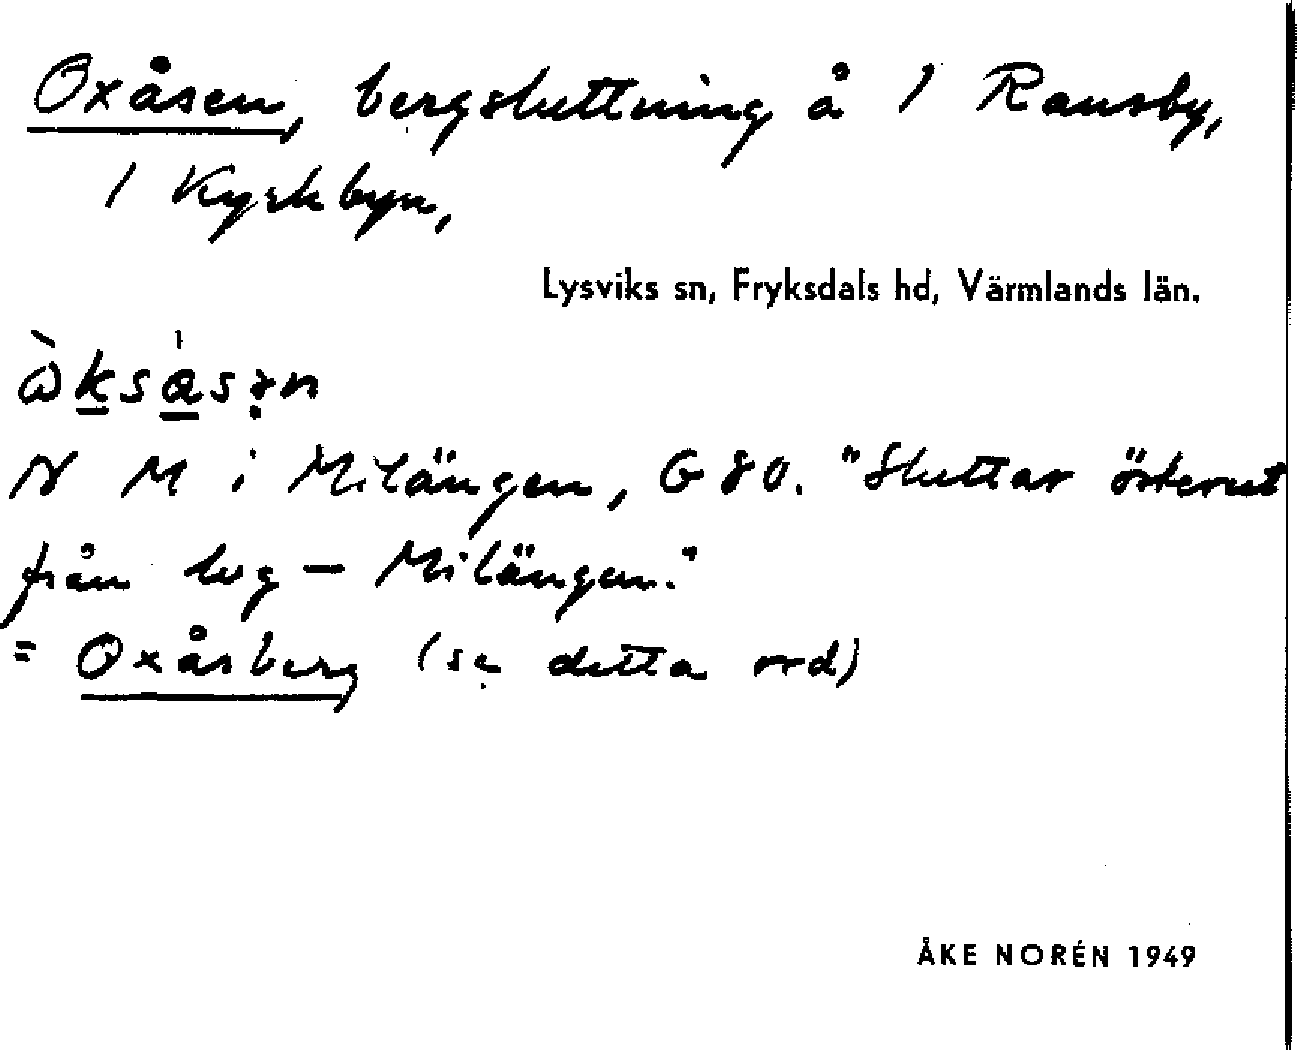 Oxåsen, bergsluttning å 1 Ransby,
1 Kyrkbyn,
Lysviks sn, Fryksdals hd, Värmlands län.
N M i Milängen, G 80. "Sluttar österut
från väg — Milängen."
= Oxåsberg (se detta ord)
ÅKE NORÉN 1949